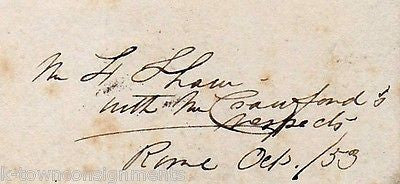 Mr F Shaw
with Mr Crawford's
respects
Rome Oct. /53
k-townconsignments